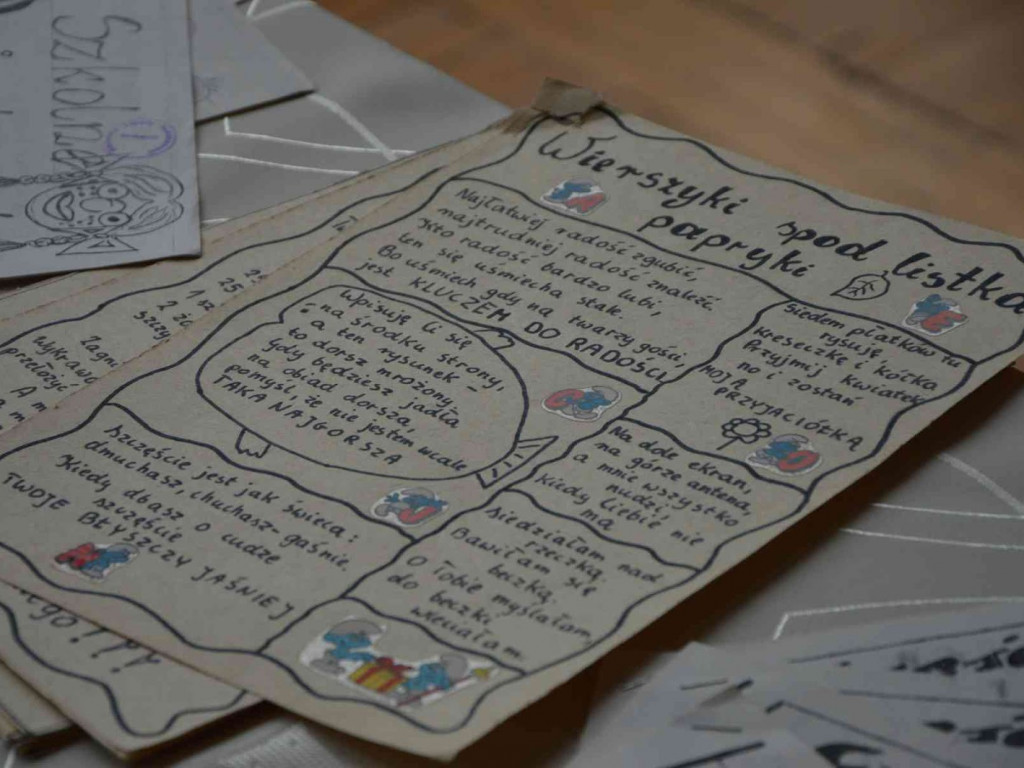 Wierszyki spod listka
papryki
Najłatwiej radość zgubić,
najtrudniej radość znaleźć
Kto radość bardzo lubi,
ten się uśmiecha stale.
Bo uśmiech gdy na twarzy gości,
jest KLUCZEM DO RADOŚCI
Siedem płatków tu
rysuję,
Kreseczkę i kółka
no i zostań
Przyjmij kwiatek
MOJĄ
PRZYJACIÓŁKĄ
Wpisuję Ci się
na środku strony,
a ten rysunek –
to dorsz mrożony.
Gdy będziesz jadła
na obiad dorsza,
pomyśl, że nie jestem wcale
TAKA NAJGORSZA
Na dole ekran,
na górze antena,
a mnie wszystko
nudzi,
kiedy Ciebie nie
ma
Szczęście jest jak świeca:
dmuchasz, chuchasz- gaśnie.
Kiedy dbasz o cudze
szczęście
TWOJE BŁYSZCZY JAŚNIEJ
Siedziałam nad
rzeczką.
Bawiłam się
beczką.
O Tobie myślałam,
do beczki
wleciałam.
A
E
C
D
Szkolna
1